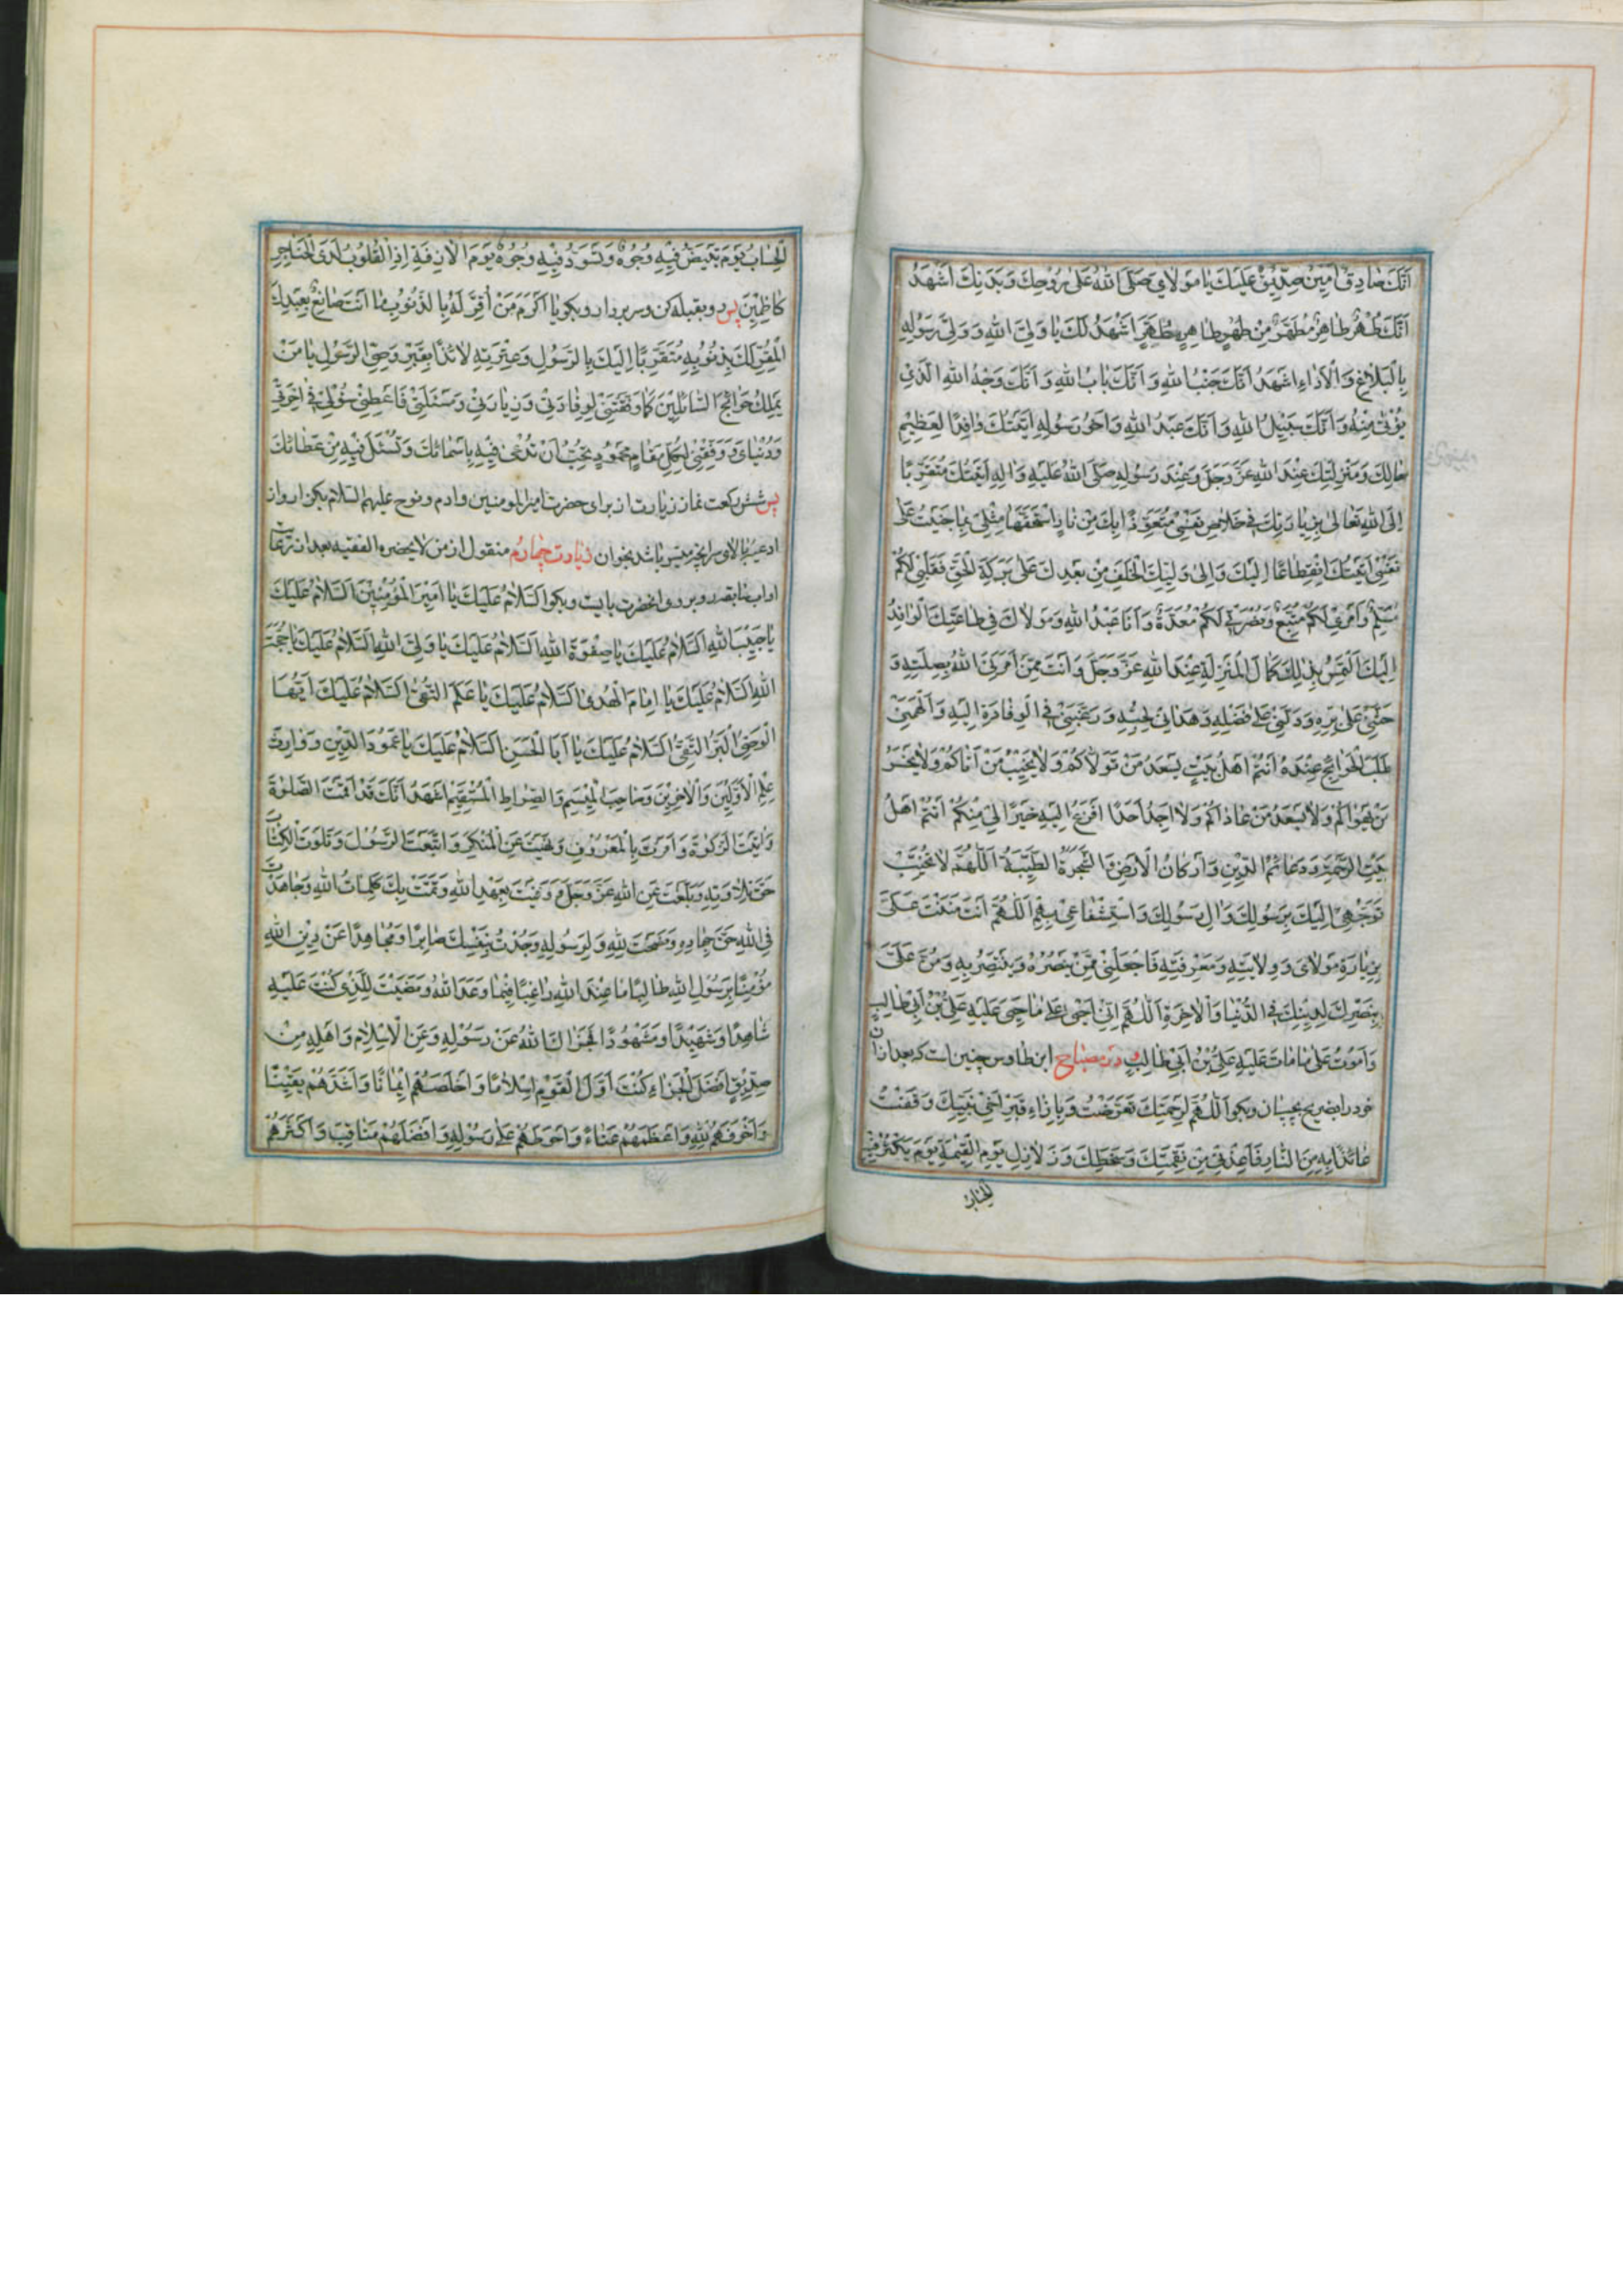 اَنَّكَ صَادِقٌ اَمِينٌ صِدِّيقٌ عَلَيْكَ يَا مَوْلَايَ صَلَّى اللهُ عَلَى رُوحِكَ وَبَدَنِكَ اَشْهَدُ
اَنَّكَ طُهْرٌ طَاهِرٌ مُطَهَّرٌ مِنْ طُهْرٍ طَاهِرٍ مُطَهَّرٍ اَشْهَدُ لَكَ يَا وَلِيَّ اللهِ وَوَلِيَّ رَسُولِهِ
بِالْبَلَاغِ وَالْاَدَاءِ اَشْهَدُ اَنَّكَ جَنْبُ اللهِ وَاَنَّكَ بَابُ اللهِ وَاَنَّكَ وَجْهُ اللهِ الَّذِي
يُؤْتَى مِنْهُ وَاَنَّكَ سَبِيلُ اللهِ وَاَنَّكَ عَبْدُ اللهِ وَاَخُو رَسُولِهِ اَتَيْتُكَ وَافِدًا لِعَظِيمِ
حَالِكَ وَمَنْزِلَتِكَ عِنْدَ اللهِ عَزَّ وَجَلَّ وَعِنْدَ رَسُولِهِ صَلَّى اللهُ عَلَيْهِ وَالِهِ اَتَيْتُكَ مُتَقَرِّبًا
اِلَى اللهِ تَعَالَى بِزِيَارَتِكَ فِي خَلَاصِ نَفْسِي مُتَعَوِّذًا بِكَ مِنْ نَارٍ اِسْتَحَقَّهَا مِثْلِي بِمَا جَنَيْتُ عَلَى
نَفْسِي اَتَيْتُكَ اِنْقِطَاعًا اِلَيْكَ وَاِلَى وَلِيِّكَ الْخَلَفِ مِنْ بَعْدِكَ عَلَى بَرَكَةِ الْحَقِّ فَقَلْبِي لَكُمْ
مُسَلِّمٌ وَاَمْرِي لَكُمْ مُتَّبِعٌ وَنُصْرَتِي لَكُمْ مُعَدَّةٌ وَاَنَا عَبْدُ اللهِ وَمَوْلَاكَ فِي طَاعَتِكَ الْوَافِدُ
اِلَيْكَ اَلْتَمِسُ بِذَلِكَ كَمَالَ الْمَنْزِلَةِ عِنْدَ اللهِ عَزَّ وَجَلَّ وَاَنْتَ مِمَّنْ اَمَرَنِيَ اللهُ بِصِلَتِهِ وَ
حَثَّنِي عَلَى بِرِّهِ وَدَلَّنِي عَلَى فَضْلِهِ وَهَدَانِي لِحُبِّهِ وَرَغَّبَنِي فِي الْوِفَادَةِ اِلَيْهِ وَاَلْهَمَنِي
طَلَبَ الْحَوَائِجِ عِنْدَهُ اَنْتُمْ اَهْلُ بَيْتٍ يَسْعَدُ مَنْ تَوَلَّاكُمْ وَلَا يَخِيبُ مَنْ اَتَاكُمْ وَلَا يَخْسَرُ
مَنْ يَهْوَاكُمْ وَلَا يَسْعَدُ مَنْ عَادَاكُمْ وَلَا اَجِدُ اَحَدًا اَفْزَعُ اِلَيْهِ خَيْرًا لِي مِنْكُمْ اَنْتُمْ اَهْلُ
بَيْتِ الرَّحْمَةِ وَدَعَائِمُ الدِّينِ وَاَرْكَانُ الْاَرْضِ وَالشَّجَرَةُ الطَّيِّبَةُ اَللّٰهُمَّ لَا تُخَيِّبْ
تَوَجُّهِي اِلَيْكَ بِرَسُولِكَ وَالِ رَسُولِكَ وَاسْتِشْفَاعِي بِهِمْ اَللّٰهُمَّ اَنْتَ مَنَنْتَ عَلَيَّ
بِزِيَارَةِ مَوْلَايَ وَوِلَايَتِهِ وَمَعْرِفَتِهِ فَاجْعَلْنِي مِمَّنْ يَنْصُرُهُ وَيَنْتَصِرُ بِهِ وَمُنَّ عَلَيَّ
بِنَصْرِكَ لِدِينِكَ فِي الدُّنْيَا وَالْاٰخِرَةِ اَللّٰهُمَّ اِنِّي اَحْيَى عَلَى مَا حَيِيَ عَلَيْهِ عَلِيُّ بْنُ اَبِي طَالِبٍ
وَاَمُوتُ عَلَى مَا مَاتَ عَلَيْهِ عَلِيُّ بْنُ اَبِي طَالِبٍ در مصباح ابن طاوس چنين است كه بعد از ان
خود را بضريح بچسبان وبگو اَللّٰهُمَّ لِرَحْمَتِكَ تَعَرَّضْتُ وَبِاِزَاءِ قَبْرِ اَخِي نَبِيِّكَ وَقَفْتُ
عَائِذًا بِهِ مِنَ النَّارِ فَاَعِذْنِي مِنْ نَقِمَتِكَ وَسَخَطِكَ وَزَلَازِلِ يَوْمِ الْقِيٰمَةِ يَوْمَ يَكْثُرُ فِيهِ
الحساب
الْحِسَابُ يَوْمَ تَبْيَضُّ فِيهِ وُجُوهٌ وَتَسْوَدُّ فِيهِ وُجُوهٌ يَوْمَ الْاٰزِفَةِ اِذِ الْقُلُوبُ لَدَى الْحَنَاجِرِ
كَاظِمِينَ پس رو بقبله كن وسر بردار وبگو يَا اَكْرَمَ مَنْ اُقِرَّ لَهُ بِالذُّنُوبِ مَا اَنْتَ صَانِعٌ بِعَبْدِكَ
الْمُقِرِّ لَكَ بِذُنُوبِهِ مُتَقَرِّبًا اِلَيْكَ بِالرَّسُولِ وَعِتْرَتِهِ لَائِذًا بِقَبْرِ وَصِيِّ الرَّسُولِ يَا مَنْ
يَمْلِكُ حَوَائِجَ السَّائِلِينَ كَمَا وَفَّقْتَنِي لِوِفَادَتِي وَزِيَارَتِي وَمَسْئَلَتِي فَاَعْطِنِي سُؤْلِي فِي اٰخِرَتِي
وَدُنْيَايَ وَوَفِّقْنِي لِكُلِّ مَقَامٍ مَحْمُودٍ تُحِبُّ اَنْ تُدْعَى فِيهِ بِاَسْمَائِكَ وَتُسْئَلَ فِيهِ مِنْ عَطَائِكَ
پس شش ركعت نماز زيارت از براى حضرت اميرالمومنين وادم ونوح عليهم السلام بكن واز
ادعيۀ بالا انچه ميسر باشد بخوان زيارت چهارم منقول از من لايحضره الفقيه بعد از رعايت
اداب سابقه رو بروى انحضرت بايست وبگو اَلسَّلَامُ عَلَيْكَ يَا اَمِيرَ الْمُؤْمِنِينَ اَلسَّلَامُ عَلَيْكَ
يَا حَبِيبَ اللهِ اَلسَّلَامُ عَلَيْكَ يَا صِفْوَةَ اللهِ اَلسَّلَامُ عَلَيْكَ يَا وَلِيَّ اللهِ اَلسَّلَامُ عَلَيْكَ يَا حُجَّةَ
اللهِ اَلسَّلَامُ عَلَيْكَ يَا اِمَامَ الْهُدَى اَلسَّلَامُ عَلَيْكَ يَا عَلَمَ التُّقَى اَلسَّلَامُ عَلَيْكَ اَيُّهَا
الْوَصِيُّ الْبَرُّ التَّقِيُّ اَلسَّلَامُ عَلَيْكَ يَا اَبَا الْحَسَنِ اَلسَّلَامُ عَلَيْكَ يَا عَمُودَ الدِّينِ وَوَارِثَ
عِلْمِ الْاَوَّلِينَ وَالْاٰخِرِينَ وَصَاحِبَ الْمِيسَمِ وَالصِّرَاطِ الْمُسْتَقِيمِ اَشْهَدُ اَنَّكَ قَدْ اَقَمْتَ الصَّلٰوةَ
وَاٰتَيْتَ الزَّكٰوةَ وَاَمَرْتَ بِالْمَعْرُوفِ وَنَهَيْتَ عَنِ الْمُنْكَرِ وَاتَّبَعْتَ الرَّسُولَ وَتَلَوْتَ الْكِتَابَ
حَقَّ تِلَاوَتِهِ وَبَلَّغْتَ عَنِ اللهِ عَزَّ وَجَلَّ وَوَفَيْتَ بِعَهْدِ اللهِ وَتَمَّتْ بِكَ كَلِمَاتُ اللهِ وَجَاهَدْتَ
فِي اللهِ حَقَّ جِهَادِهِ وَنَصَحْتَ لِلّٰهِ وَلِرَسُولِهِ وَجُدْتَ بِنَفْسِكَ صَابِرًا وَمُجَاهِدًا عَنْ دِينِ اللهِ
مُؤْمِنًا بِرَسُولِ اللهِ طَالِبًا مَا عِنْدَ اللهِ رَاغِبًا فِيمَا وَعَدَ اللهُ وَمَضَيْتَ لِلَّذِي كُنْتَ عَلَيْهِ
شَاهِدًا وَشَهِيدًا وَمَشْهُودًا فَجَزَاكَ اللهُ عَنْ رَسُولِهِ وَعَنِ الْاِسْلَامِ وَاَهْلِهِ مِنْ
صِدِّيقٍ اَفْضَلَ الْجَزَاءِ كُنْتَ اَوَّلَ الْقَوْمِ اِسْلَامًا وَاَخْلَصَهُمْ اِيمَانًا وَاَشَدَّهُمْ يَقِينًا
وَاَخْوَفَهُمْ لِلّٰهِ وَاَعْظَمَهُمْ عَنَاءً وَاَحْوَطَهُمْ عَلَى رَسُولِهِ وَاَفْضَلَهُمْ مَنَاقِبَ وَاَكْثَرَهُمْ